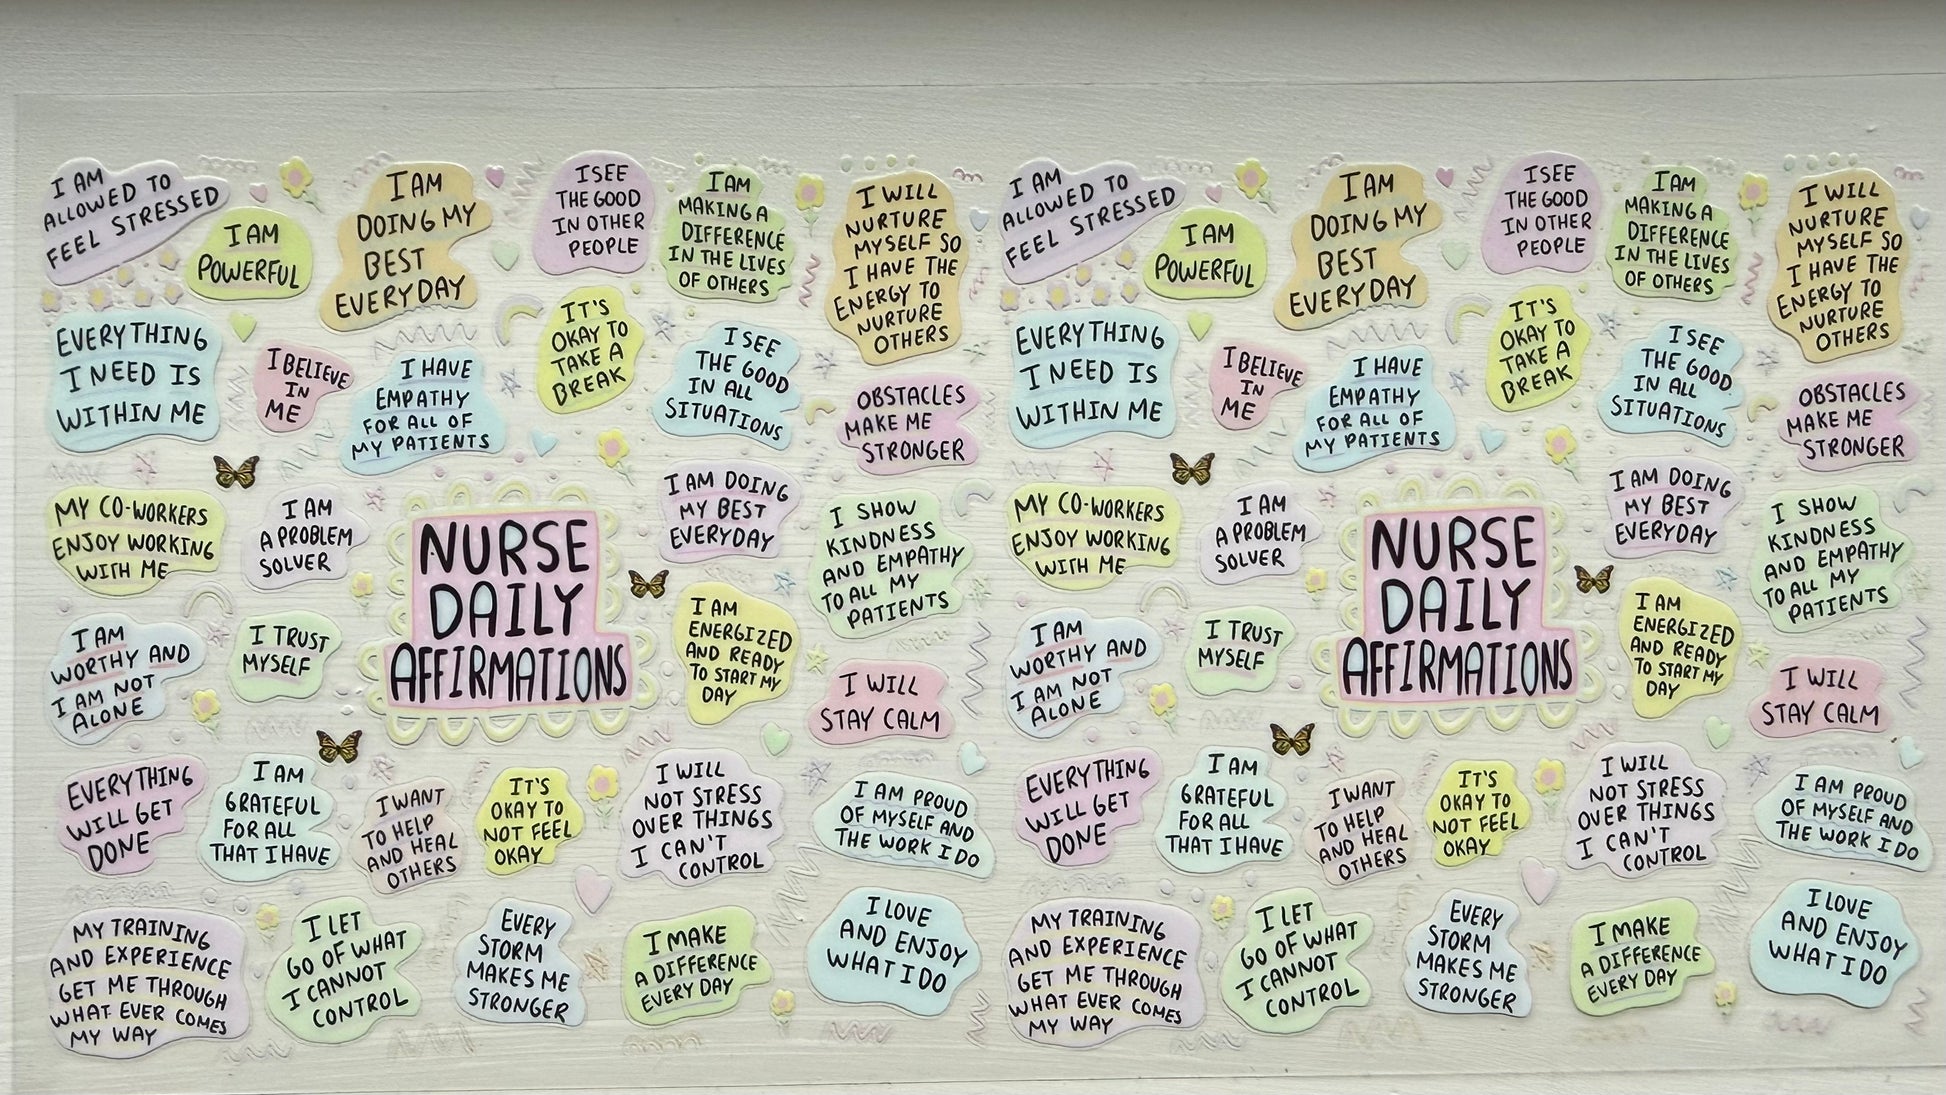 I AM
ALLOWED TO
FEEL STRESSED
I AM
POWERFUL
I AM
DOING MY
BEST
EVERYDAY
I SEE
THE GOOD
IN OTHER
PEOPLE
I AM
MAKING A
DIFFERENCE
IN THE LIVES
OF OTHERS
I WILL
NURTURE
MYSELF SO
I HAVE THE
ENERGY TO
NURTURE
OTHERS
EVERYTHING
I NEED IS
WITHIN ME
I BELIEVE
IN
ME
I HAVE
EMPATHY
FOR ALL OF
MY PATIENTS
IT'S
OKAY TO
TAKE A
BREAK
I SEE
THE GOOD
IN ALL
SITUATIONS
OBSTACLES
MAKE ME
STRONGER
MY CO-WORKERS
ENJOY WORKING
WITH ME
I AM
A PROBLEM
SOLVER
NURSE
DAILY
AFFIRMATIONS
I AM DOING
MY BEST
EVERYDAY
I SHOW
KINDNESS
AND EMPATHY
TO ALL MY
PATIENTS
I AM
WORTHY AND
I AM NOT
ALONE
I TRUST
MYSELF
I AM
ENERGIZED
AND READY
TO START MY
DAY
I WILL
STAY CALM
EVERYTHING
WILL GET
DONE
I AM
GRATEFUL
FOR ALL
THAT I HAVE
I WANT
TO HELP
AND HEAL
OTHERS
IT'S
OKAY TO
NOT FEEL
OKAY
I WILL
NOT STRESS
OVER THINGS
I CAN'T
CONTROL
I AM PROUD
OF MYSELF AND
THE WORK I DO
MY TRAINING
AND EXPERIENCE
GET ME THROUGH
WHAT EVER COMES
MY WAY
I LET
GO OF WHAT
I CANNOT
CONTROL
EVERY
STORM
MAKES ME
STRONGER
I MAKE
A DIFFERENCE
EVERY DAY
I LOVE
AND ENJOY
WHAT I DO
I AM
ALLOWED TO
FEEL STRESSED
I AM
POWERFUL
I AM
DOING MY
BEST
EVERYDAY
I SEE
THE GOOD
IN OTHER
PEOPLE
I AM
MAKING A
DIFFERENCE
IN THE LIVES
OF OTHERS
I WILL
NURTURE
MYSELF SO
I HAVE THE
ENERGY TO
NURTURE
OTHERS
EVERYTHING
I NEED IS
WITHIN ME
I BELIEVE
IN
ME
I HAVE
EMPATHY
FOR ALL OF
MY PATIENTS
IT'S
OKAY TO
TAKE A
BREAK
I SEE
THE GOOD
IN ALL
SITUATIONS
OBSTACLES
MAKE ME
STRONGER
MY CO-WORKERS
ENJOY WORKING
WITH ME
I AM
A PROBLEM
SOLVER
NURSE
DAILY
AFFIRMATIONS
I AM DOING
MY BEST
EVERYDAY
I SHOW
KINDNESS
AND EMPATHY
TO ALL MY
PATIENTS
I AM
WORTHY AND
I AM NOT
ALONE
I TRUST
MYSELF
I AM
ENERGIZED
AND READY
TO START MY
DAY
I WILL
STAY CALM
EVERYTHING
WILL GET
DONE
I AM
GRATEFUL
FOR ALL
THAT I HAVE
I WANT
TO HELP
AND HEAL
OTHERS
IT'S
OKAY TO
NOT FEEL
OKAY
I WILL
NOT STRESS
OVER THINGS
I CAN'T
CONTROL
I AM PROUD
OF MYSELF AND
THE WORK I DO
MY TRAINING
AND EXPERIENCE
GET ME THROUGH
WHAT EVER COMES
MY WAY
I LET
GO OF WHAT
I CANNOT
CONTROL
EVERY
STORM
MAKES ME
STRONGER
I MAKE
A DIFFERENCE
EVERY DAY
I LOVE
AND ENJOY
WHAT I DO